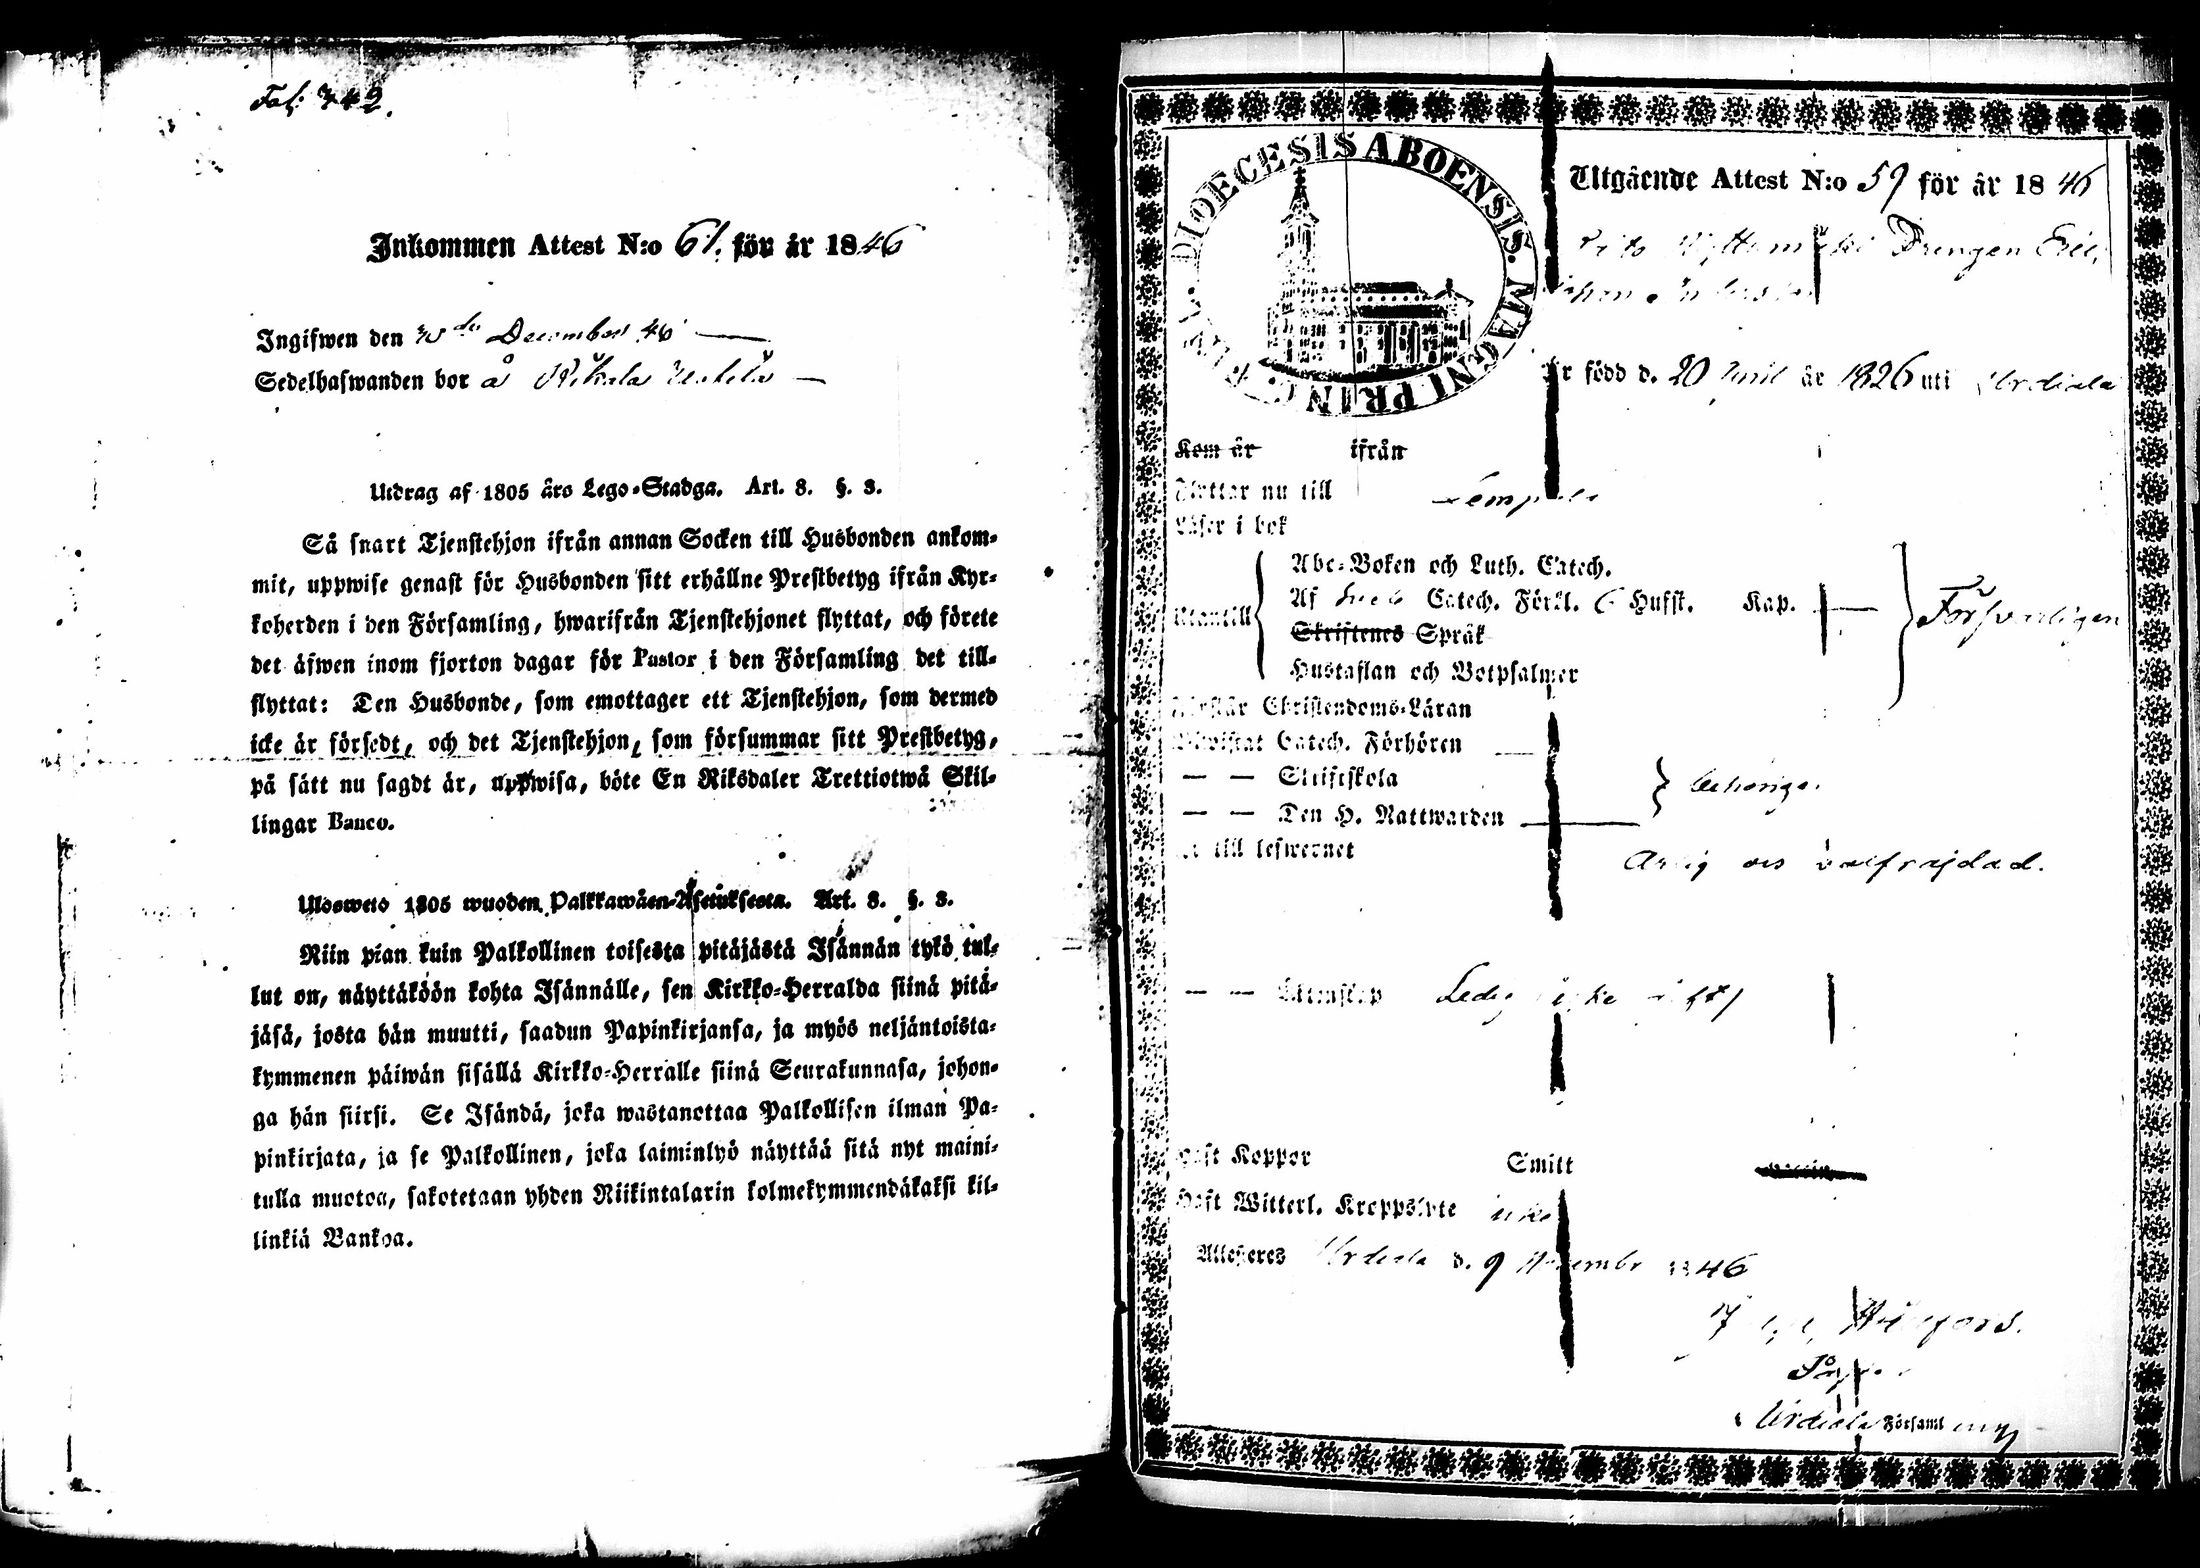 Fol: 342.
Inkommen Attest N:o 61. för år 1846
Ingifwen den 30de December 46
Sedelhafwanden bor å
Utdrag af 1805 års Lego-Stadga. Art. 8. §. 3.
Så snart Tjenstehjon ifrån annan Socken till Husbonden ankom-
mit, uppwise genast för Husbonden sitt erhållne Prestbetyg ifrån Kyr-
koherden i den Församling, hwarifrån Tjenstehjonet flyttat, och förete
det äfwen inom fjorton dagar för Pastor i den Församling det till-
flyttat: Den Husbonde, som emottager ett Tjenstehjon, som dermed
icke är försedt, och det Tjenstehjon, som försummar sitt Prestbetyg,
på sätt nu sagdt är, uppwisa, böte En Riksdaler Trettiotwå Skil-
lingar Banco.
Ulosweto 1805 wuoden Palkkawäen-Asetuksesta. Art. 8. §. 3.
Niin pian kuin Palkollinen toisesta pitäjästä Isännän tykö tul-
lut on, näyttäköön kohta Isännälle, sen Kirkko-Herralda siinä pitä-
jäsä, josta hän muutti, saadun Papinkirjansa, ja myös neljäntoista-
kymmenen päiwän sisällä Kirkko-Herralle siinä Seurakunnasa, johon-
ga hän siirsi. Se Isändä, joka wastanottaa Palkollisen ilman Pa-
pinkirjata, ja se Palkollinen, joka laiminlyö näyttää sitä nyt maini-
tulla muotoa, sakotetaan yhden Riikintalarin kolmekymmendäkaksi kil-
linkiä Bankoa.
DIOECESIS ABOENSIS. MAGNI PRINC. FINL.
Utgående Attest N:o 59 för år 1846
Drengen
är född d. 20 April år 1826 uti Urdiala
Kom år ifrån
Flyttar nu till
Läser i bok
Abc-Boken och Luth. Catech.
Utantill Af Catech. Förkl. 6 Hufst. Kap. Försvarligen
Skriftenes Språk
Hustaflan och Botpsalmer
Förstår Christendoms-Läran
Bewistat Catech. Förhören
— — Skriftskola behörige.
— — Den H. Nattwarden
Är till lefwernet Ärlig och välfräjdad.
— — Ledig
Haft Koppor Smitt
Haft Witterl. Kroppslyte icke
Attesteres Urdiala d. 9 November 1846
Urdiala Församling